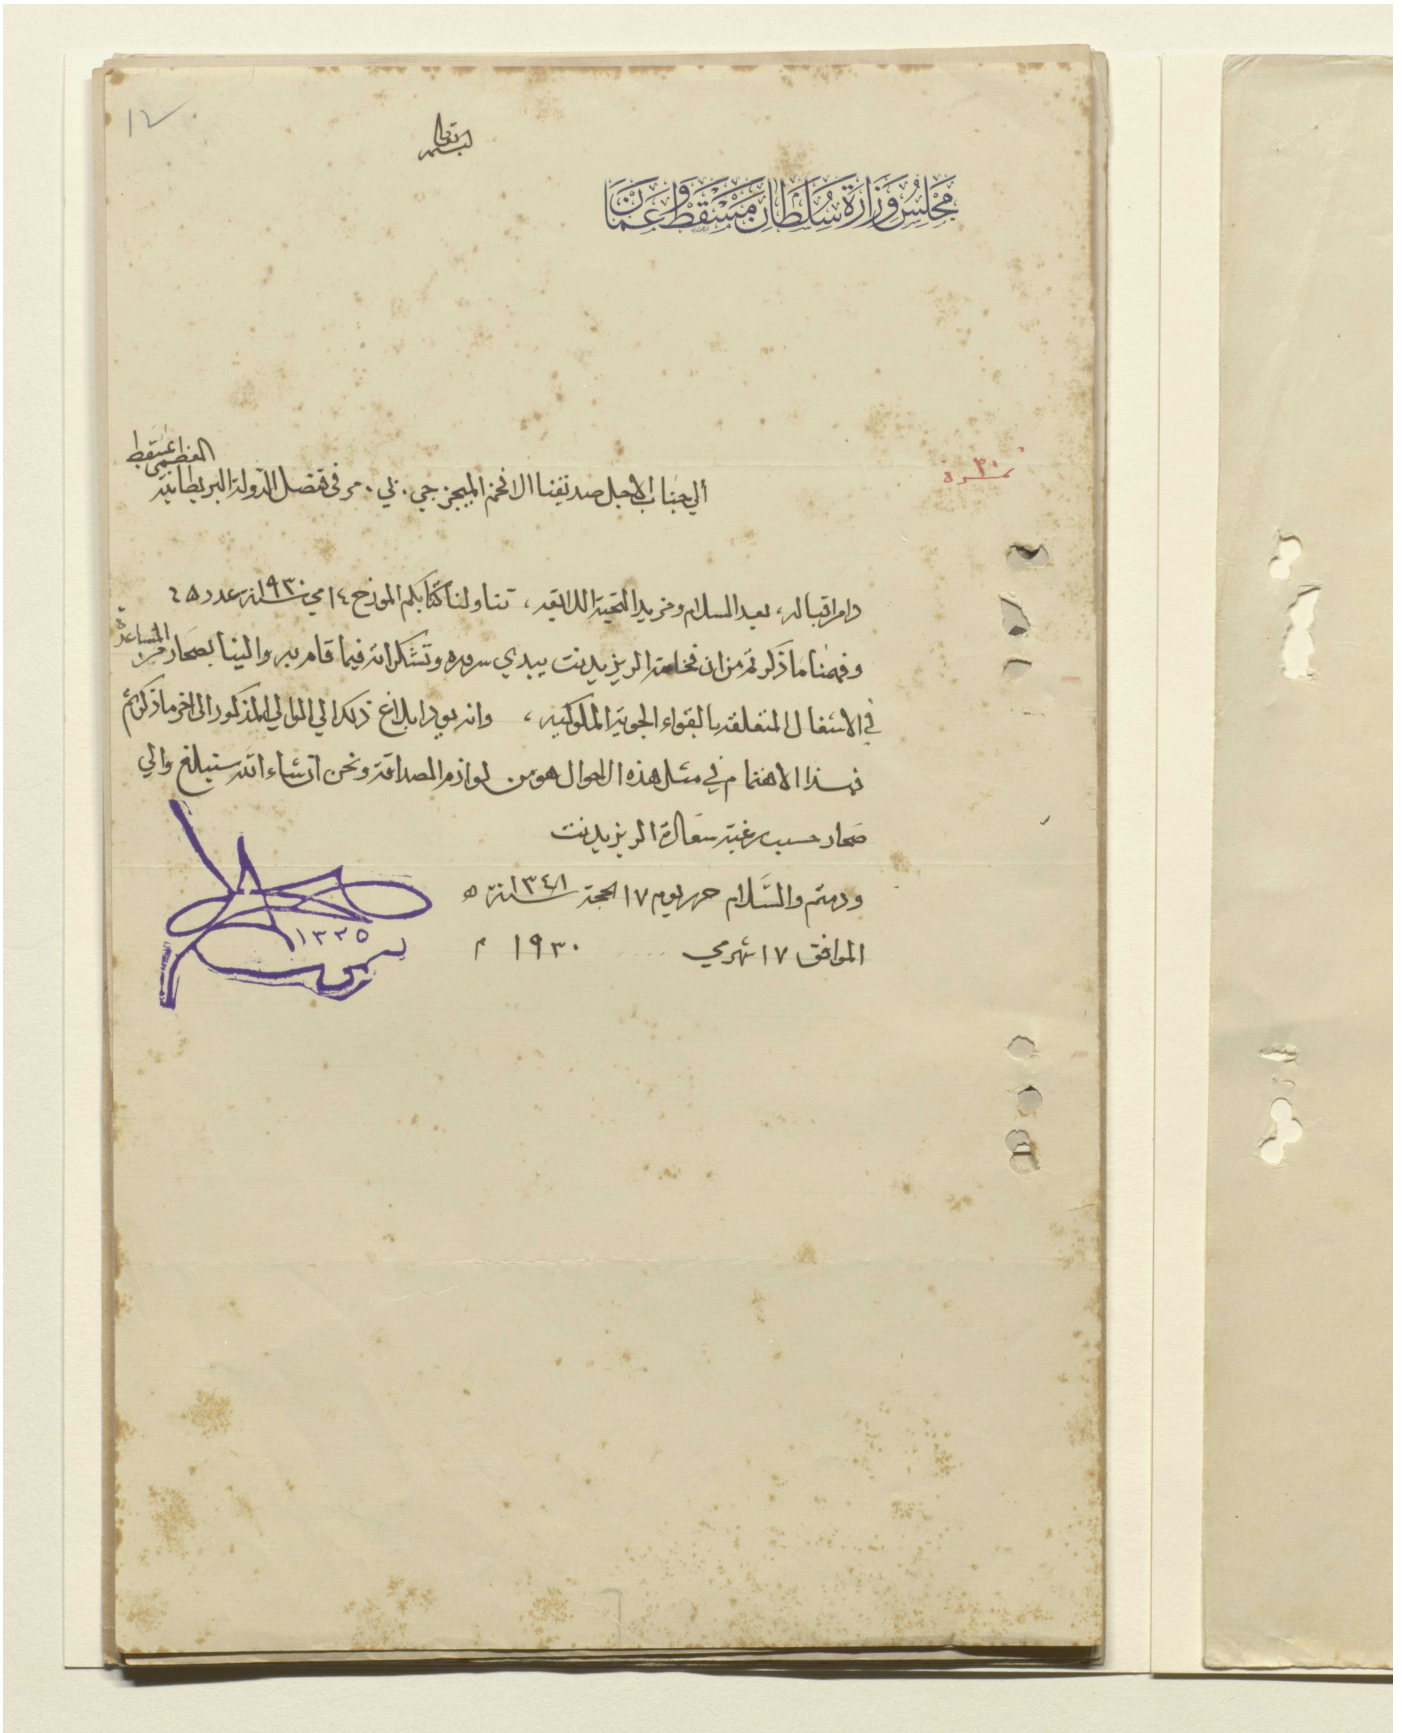 ١٢
بسمه تعالى
مجلس وزارة سلطان مسقط وعمان
نمرة ٣٠
الي جناب الاجل صديقنا الافخم الميجر جي. پي. مرفي قنصل الدولة البريطانية العظمى بمسقط
دام اقباله، بعد السلام ومزيد التحية اللائقه، تناولنا كتابكم المؤرخ ١٤ مي سنة ١٩٣٠ عدد ٤٥
وفهمنا ما ذكرتم من ان فخامة الريزيدنت يبدي سروره وتشكراته فيما قام به والينا بصحار من المساعدة
في الاشغال المتعلقه بالقواء الجوية الملوكيه، وانه يود ابلاغ ذلك الي الوالي المذكور الى اخر ما ذكرتم
فهذا الاهتمام في مثل هذه الاحوال هو من لوازم الصداقة ونحن انشاء الله سنبلغ والي
صحار حسب رغبة سعادة الريزيدنت
ودمتم والسلام حرر يوم ١٧ الحجة سنة ١٣٤٨ ه
الموافق ١٧ شهر مي ١٩٣٠ م
١٣٣٥